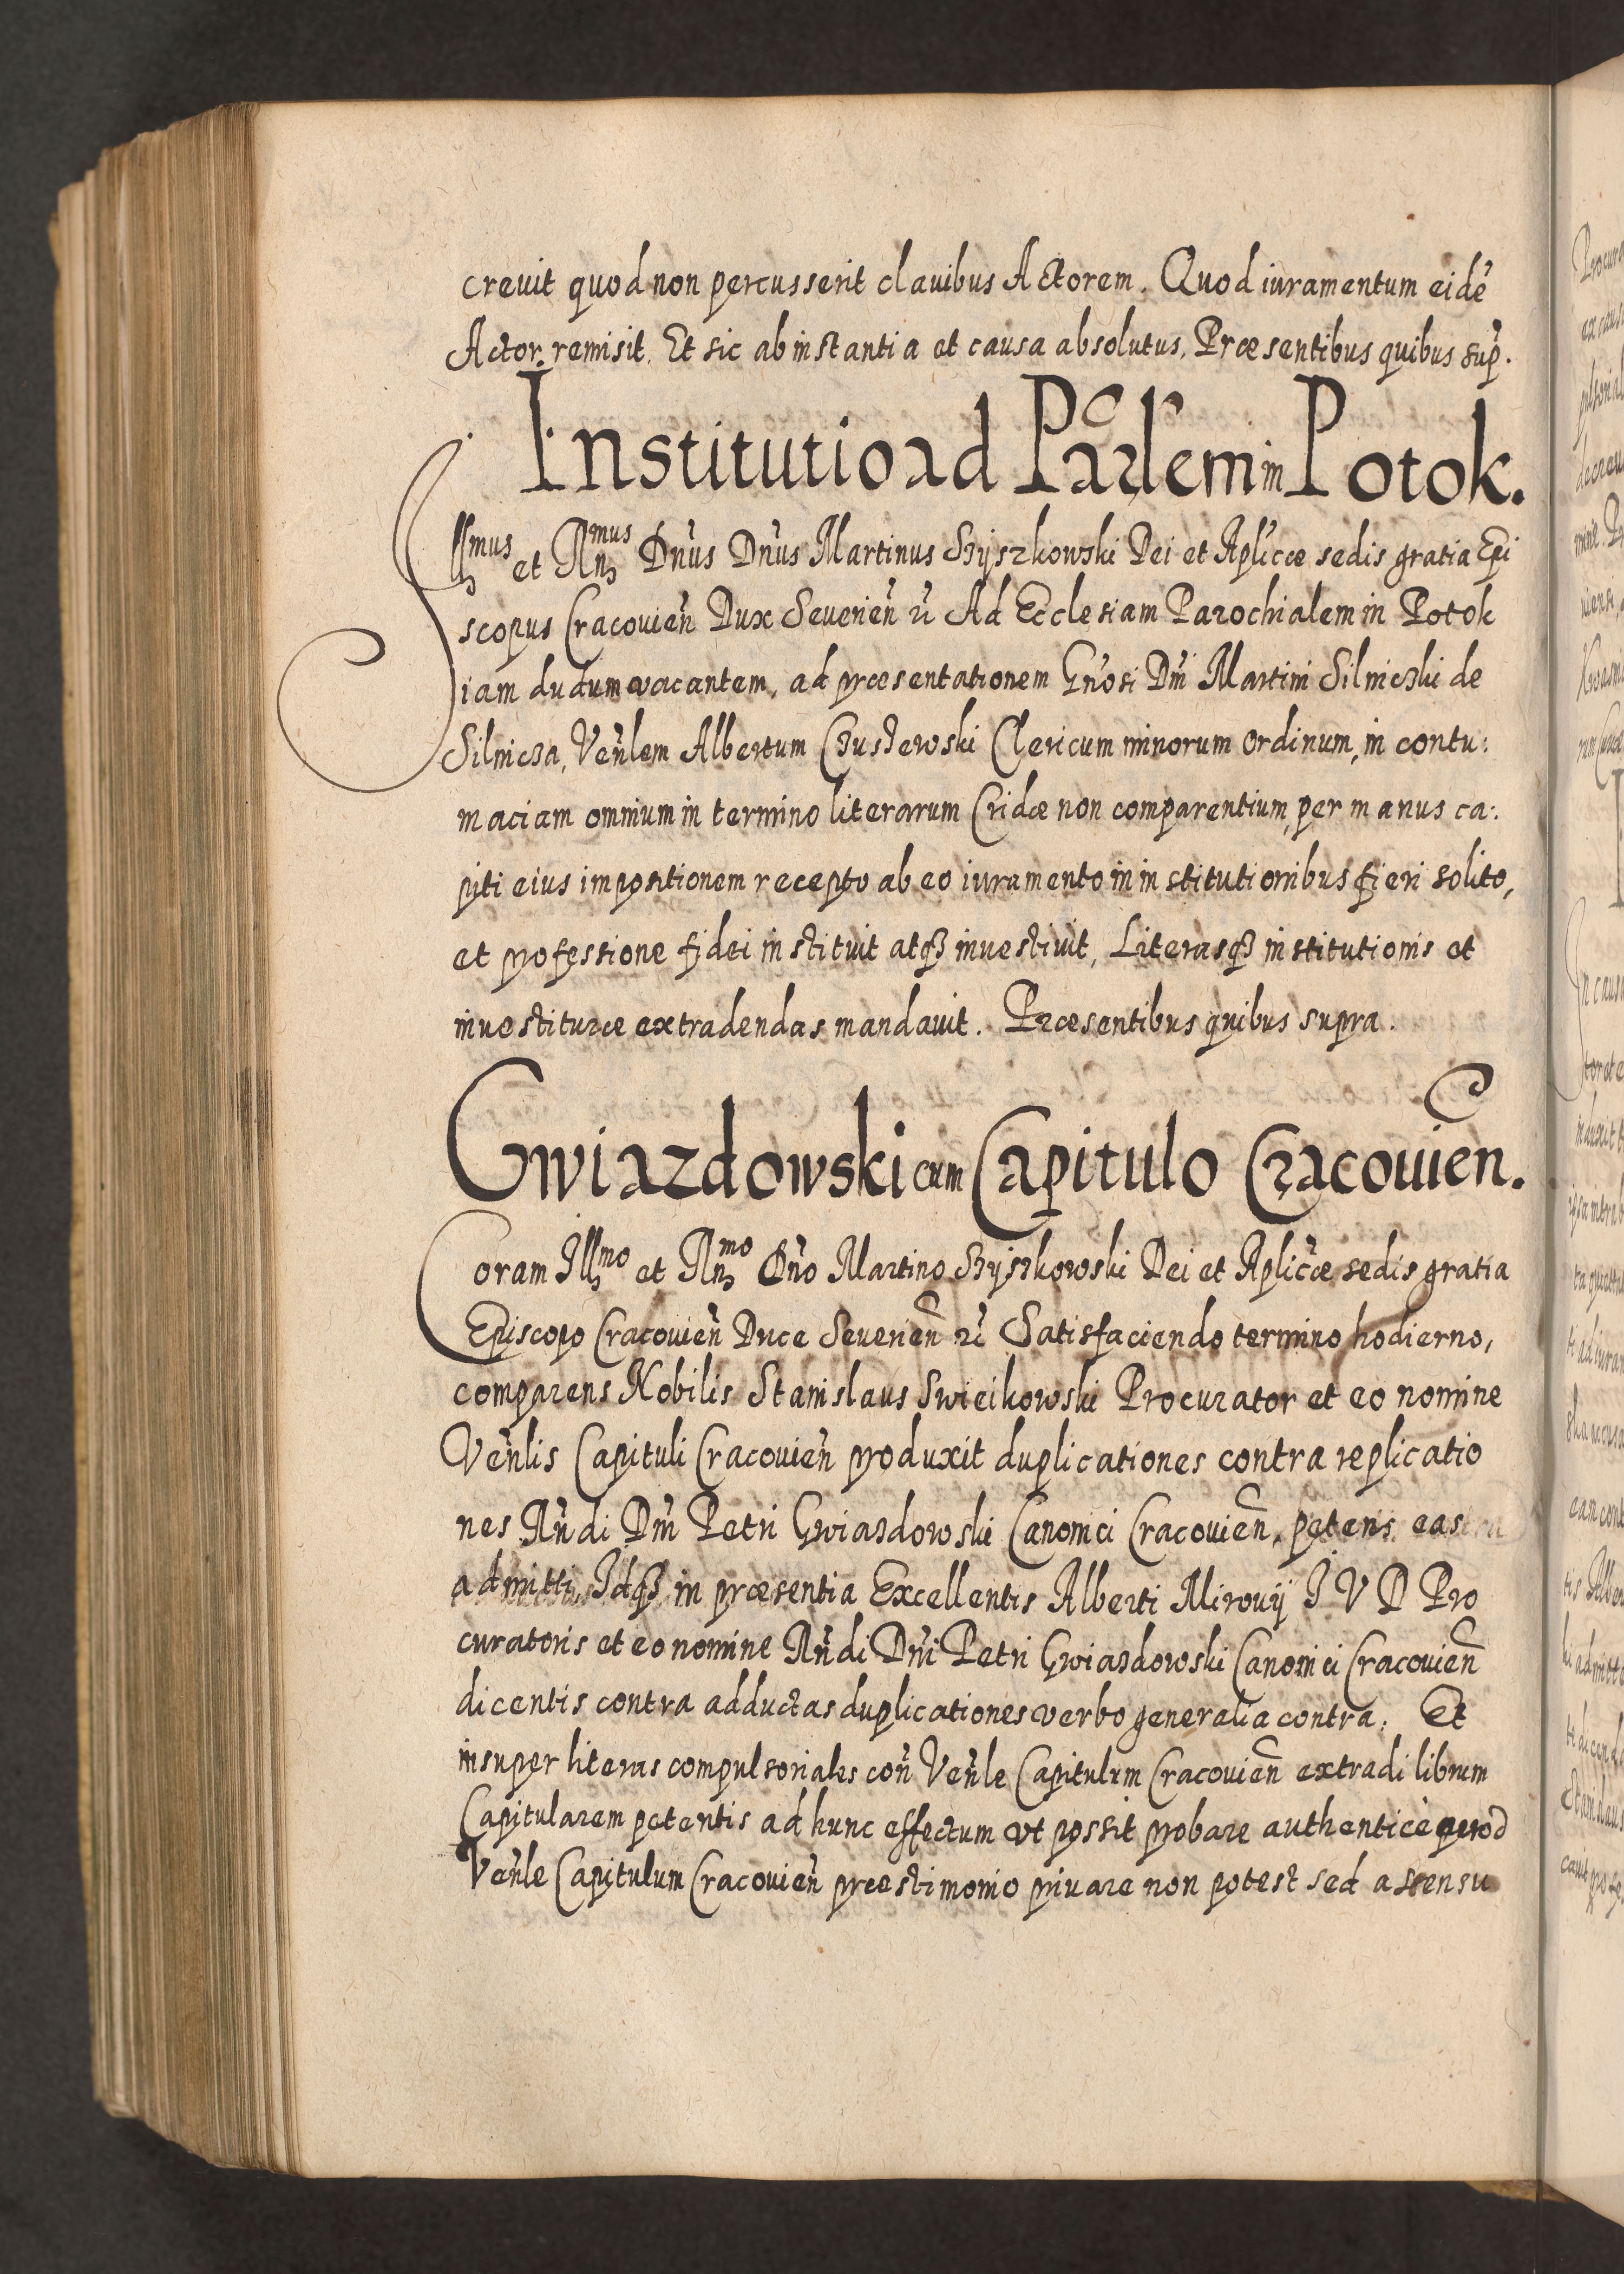 creuit quod non percusserit clauibus Actorem. Quod iuramentum eidē
Actor remisit. Et sic ab instantia et causa absolutus. Præsentibus quibus sup̄.
Institutio ad Parlem in Potok.
Illmus et Rndmus Dn̄us Dn̄us Martinus Szyszkowski Dei et Aplicæ sedis gratia Epi
scopus Cracouien̄ Dux Seuerien̄ &c Ad Ecclesiam Parochialem in Potok
iam dudum vacantem, ad præsentationem Gn̄osi Dn̄i Martini Silniczki de
Silnicza, Ven̄lem Albertum Czustewski Clericum minorum ordinum, in contu:
maciam omnium in termino literarum Cridæ non comparentium, per manus ca:
piti eius impositionem recepto ab eo iuramento in institutionibus fieri solito,
et professione fidei instituit atq₃ inuestiuit, Literasq₃ institutionis et
inuestituræ extradendas mandauit. Præsentibus quibus supra.
Gwiazdowski cum Capitulo Cracouien̄.
Coram Illmo et Rndmo Dn̄o Martino Szyszkowski Dei et Aplicæ sedis gratia
Episcopo Cracouien̄ Duce Seuerien̄ &c Satisfaciendo termino hodierno,
comparens Nobilis Stanislaus Swieikowski Procurator et eo nomine
Ven̄lis Capituli Cracouien̄ produxit duplicationes contra replicatio
nes Rn̄di Dn̄i Petri Gwiazdowski Canonici Cracouien̄, petens eas
admitti, Idq₃ in præsentia Excellentis Alberti Mirouij I V D Pro
curatoris et eo nomine Rn̄di Dn̄i Petri Gwiazdowski Canonici Cracouien̄
dicentis contra adductas duplicationes verbo generalia contra. Et
insuper literas compulsoriales con̄ Ven̄le Capitulum Cracouien̄ extradi librum
Capitularem petentis ad hunc effectum vt possit probare authenticè quod
Ven̄le Capitulum Cracouien̄ præstimonio priuare non potest sed assensu